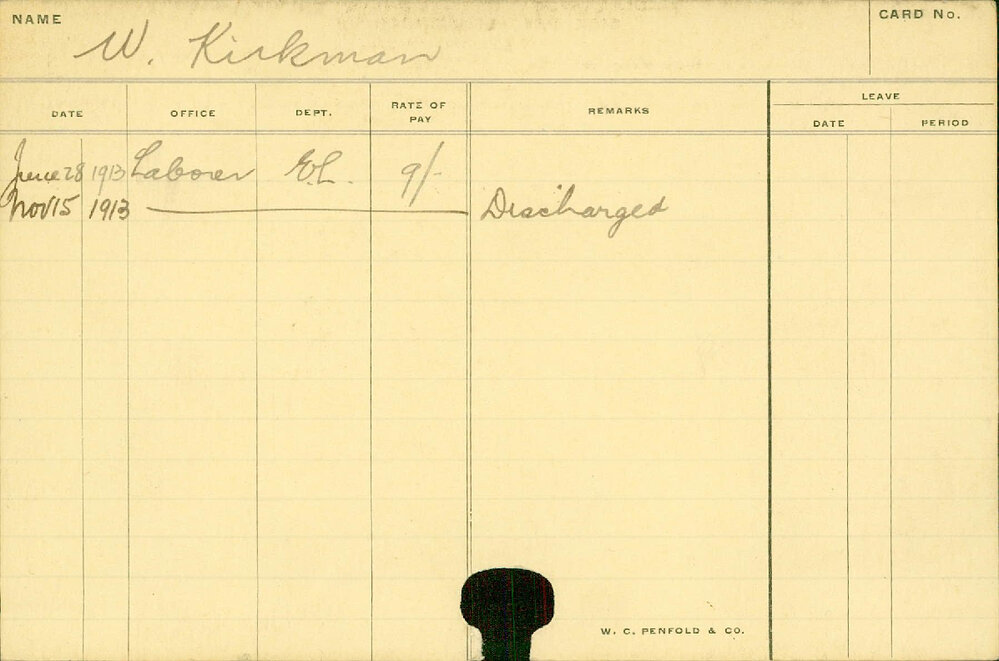 NAME
W. Kirkman
CARD No.
DATE OFFICE DEPT. RATE OF PAY REMARKS LEAVE
DATE PERIOD
June 28 1913 Laborer E.L. 9/-
Nov 15 1913 Discharged
W. C. PENFOLD & CO.